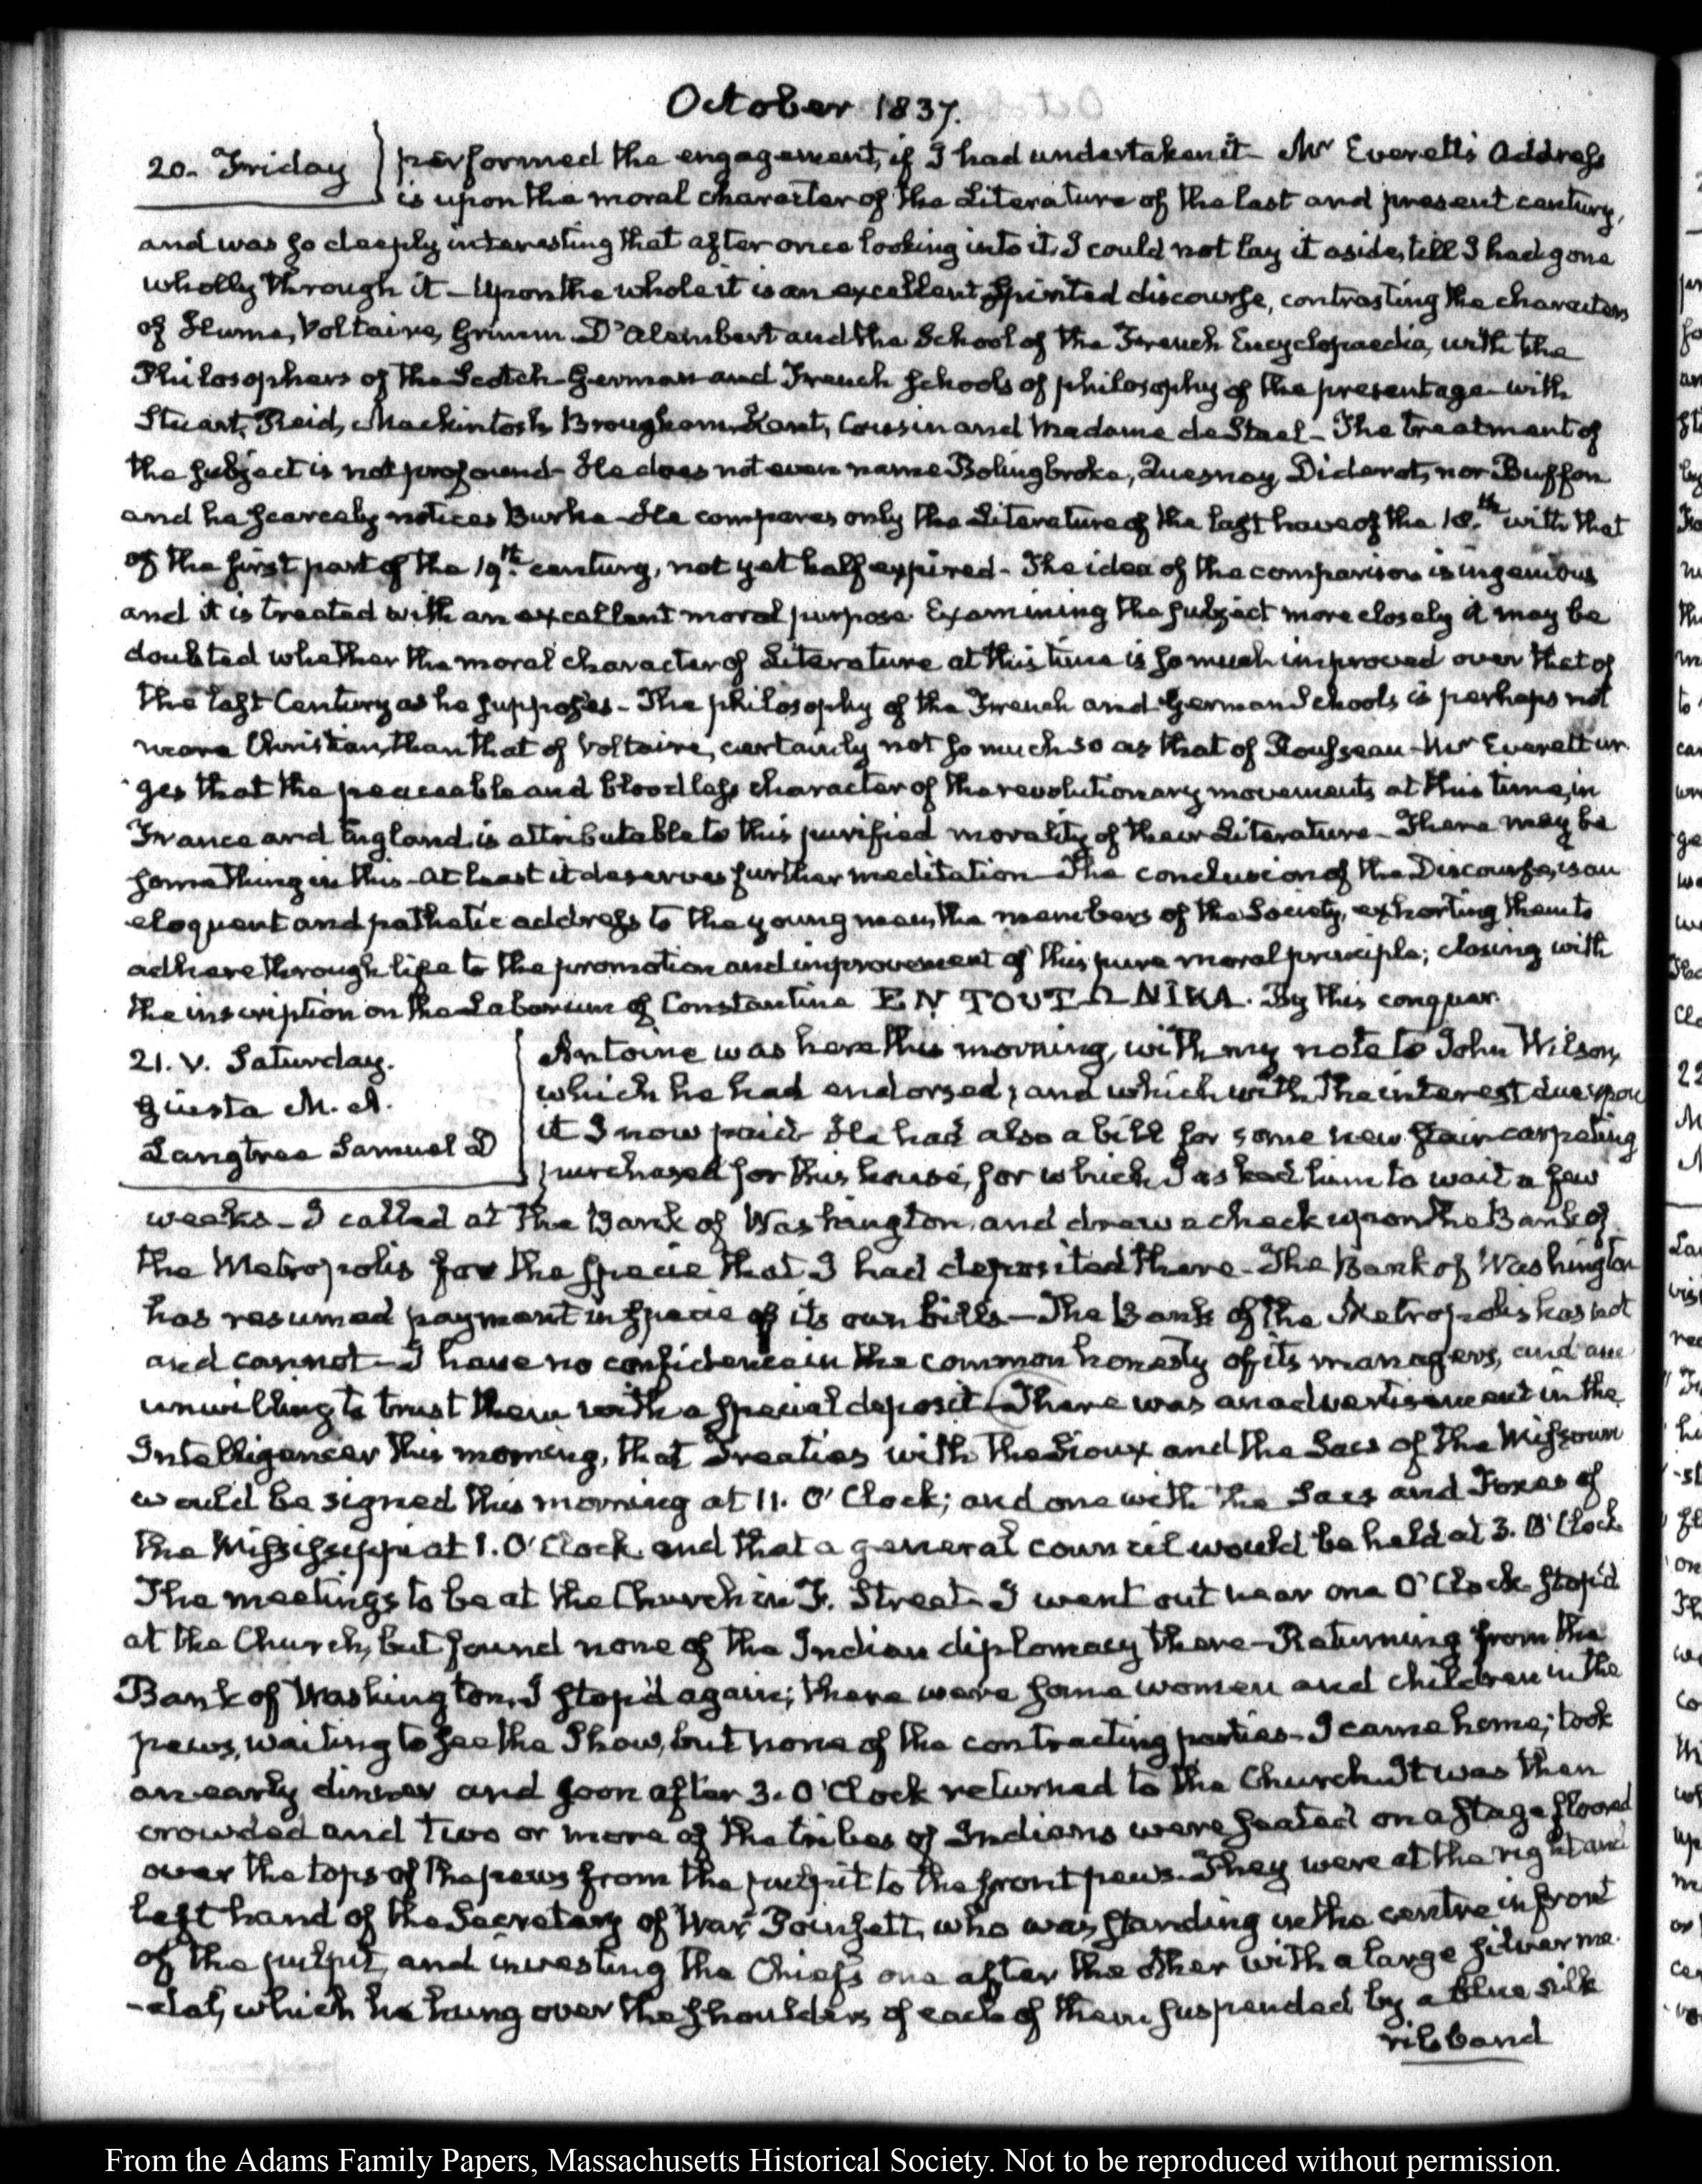 October 1837.
20. Friday
performed the engagement, if I had undertaken it- Mr Everett's Address
is upon the moral character of the Literature of the last and present century,
and was so deeply interesting that after once looking into it, I could not lay it aside, till I had gone
wholly through it- Upon the whole it is an excellent, spirited discourse, contrasting the characters
of Hume, Voltaire, Grimm D'Alembert and the School of the French Encyclopaedia, with the
Philosophers of the Scotch German and French schools of philosophy of the present age- with
Stuart, Reid, Mackintosh Brougham, Kant, Cousin and Madame de Stael- The treatment of
the subject is not profound- He does not even name Bolingbroke, Quesnay, Diderot, nor Buffon
and he scarcely notices Burke- He compares only the Literature of the last have of the 18.th with that
of the first part of the 19.th century, not yet half expired- The idea of the comparison is ingenious
and it is treated with an excellent moral purpose. Examining the subject more closely it may be
doubted whether the moral character of Literature at this time is so much improved over that of
the last Century as he supposes- The philosophy of the French and German Schools is perhaps not
more Christian, than that of Voltaire, certainly not so much so as that of Rousseau- Mr Everett ur-
ges that the peaceable and bloodless character of the revolutionary movements at this time, in
France and England is attributable to this purified morality of their Literature- There may be
something in this- At least it deserves further meditation- The conclusion of the Discourse, is an
eloquent and pathetic address to the young men, the members of the Society, exhorting them to
adhere through life to the promotion and improvement of this pure moral principle; closing with
the inscription on the Labarum of Constantine ΕΝ ΤΟΥΤΩ ΝΙΚΑ. By this conquer.
21. V. Saturday.
Giusta M. A.
Langtree Samuel D
Antoine was here this morning, with my note to John Wilson,
which he had endorsed; and which with the interest due upon
it I now paid- He had also a bill for some new stair carpeting
purchased for this house, for which I asked him to wait a few
weeks- I called at the Bank of Washington, and drew a check upon the Bank of
the Metropolis for the specie that I had deposited there- The Bank of Washington
has resumed payment in specie of its own bills- The Bank of the Metropolis has not
and cannot- I have no confidence in the common honesty of its managers, and am
unwilling to trust them with a special deposit- There was an advertisement in the
Intelligencer this morning, that Treaties with the Sioux and the Sacs of the Missouri
would be signed this morning at 11. O'Clock; and one with the Sacs and Foxes of
the Mississippi at 1. O'Clock and that a general council would be held at 3. O'Clock
The meetings to be at the Church in F. Street- I went out near one O'Clock- stop'd
at the Church, but found none of the Indian diplomacy there- Returning from the
Bank of Washington, I stop'd again; there were some women and children in the
pews, waiting to see the Show, but none of the contracting parties- I came home; took
an early dinner and soon after 3. O'Clock returned to the Church. It was then
crowded and two or more of the tribes of Indians were seated on a stage floored
over the tops of the pews from the pulpit to the front pews- They were at the right and
left hand of the Secretary of War, Poinsett, who was standing in the centre in front
of the pulpit, and investing the Chiefs one after the other with a large silver me-
-dal, which he hung over the shoulders of each of them suspended by a blue silk
ribband
From the Adams Family Papers, Massachusetts Historical Society. Not to be reproduced without permission.